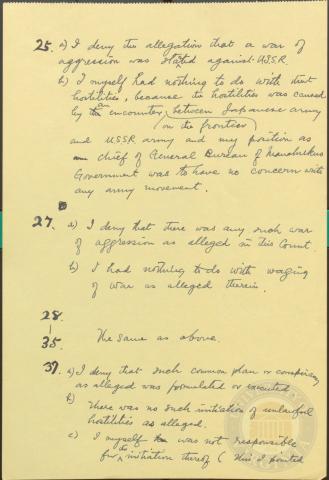 25. a) I deny the allegation that a war of
aggression was started against U.S.S.R.
b) I myself had nothing to do with that
hostilities, because the hostilities was caused
by the an encounter between Japanese army
(on the frontier)
and U.S.S.R. army and my position as
chief of General Bureau of Manchukuo
Government was to have no concern with
any army movement.
27. a) I deny that there was any such war
of aggression as alleged in this Count.
b) I had nothing to do with waging
of war as alleged therein.
28.
|
35. The same as above.
37. a) I deny that such common plan or conspiracy
as alleged was formulated or executed
b) There was no such initiation of unlawful
hostilities as alleged.
c) I myself was not responsible
for the initiation thereof (this I pointed